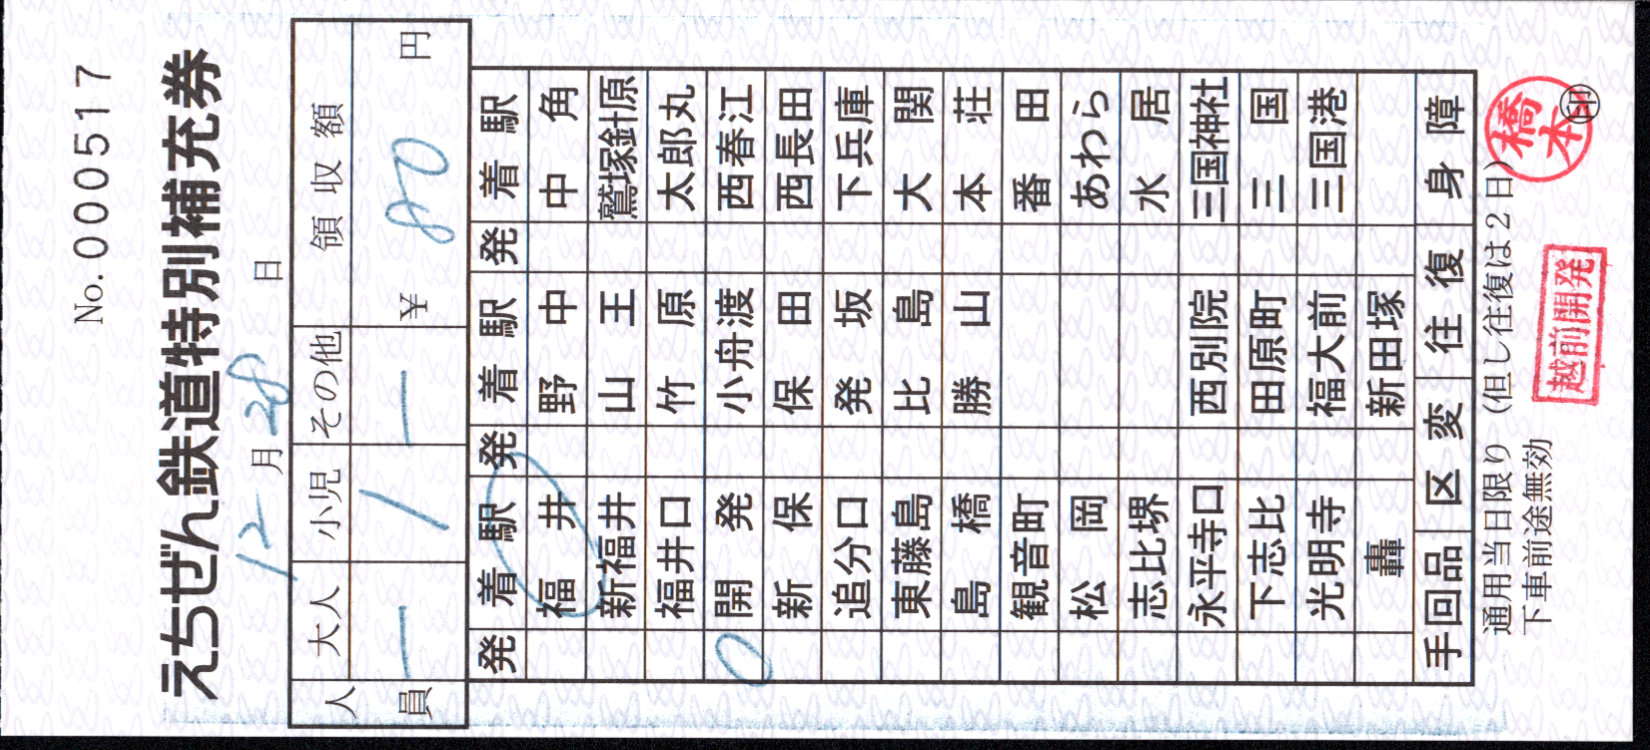 No. 000517
えちぜん鉄道特別補充券
12月28日
人員 大人 小児 その他 領収額
― 1 ― ¥ 円
発 着 駅 発 着 駅 発 着 駅
福井 野中 中角
新福井 山王 鷲塚針原
福井口 竹原 太郎丸
開発 小舟渡 西春江
新保 保田 西長田
追分口 発坂 下兵庫
東藤島 比島 大関
島橋 勝山 本荘
観音町 番田
松岡 あわら
志比堺 水居
永平寺口 西別院 三国神社
下志比 田原町 三国
光明寺 福大前 三国港
轟 新田塚
手回品 区変 往復 身障
通用当日限り（但し往復は2日）
下車前途無効
橋本
㊞
越前開発